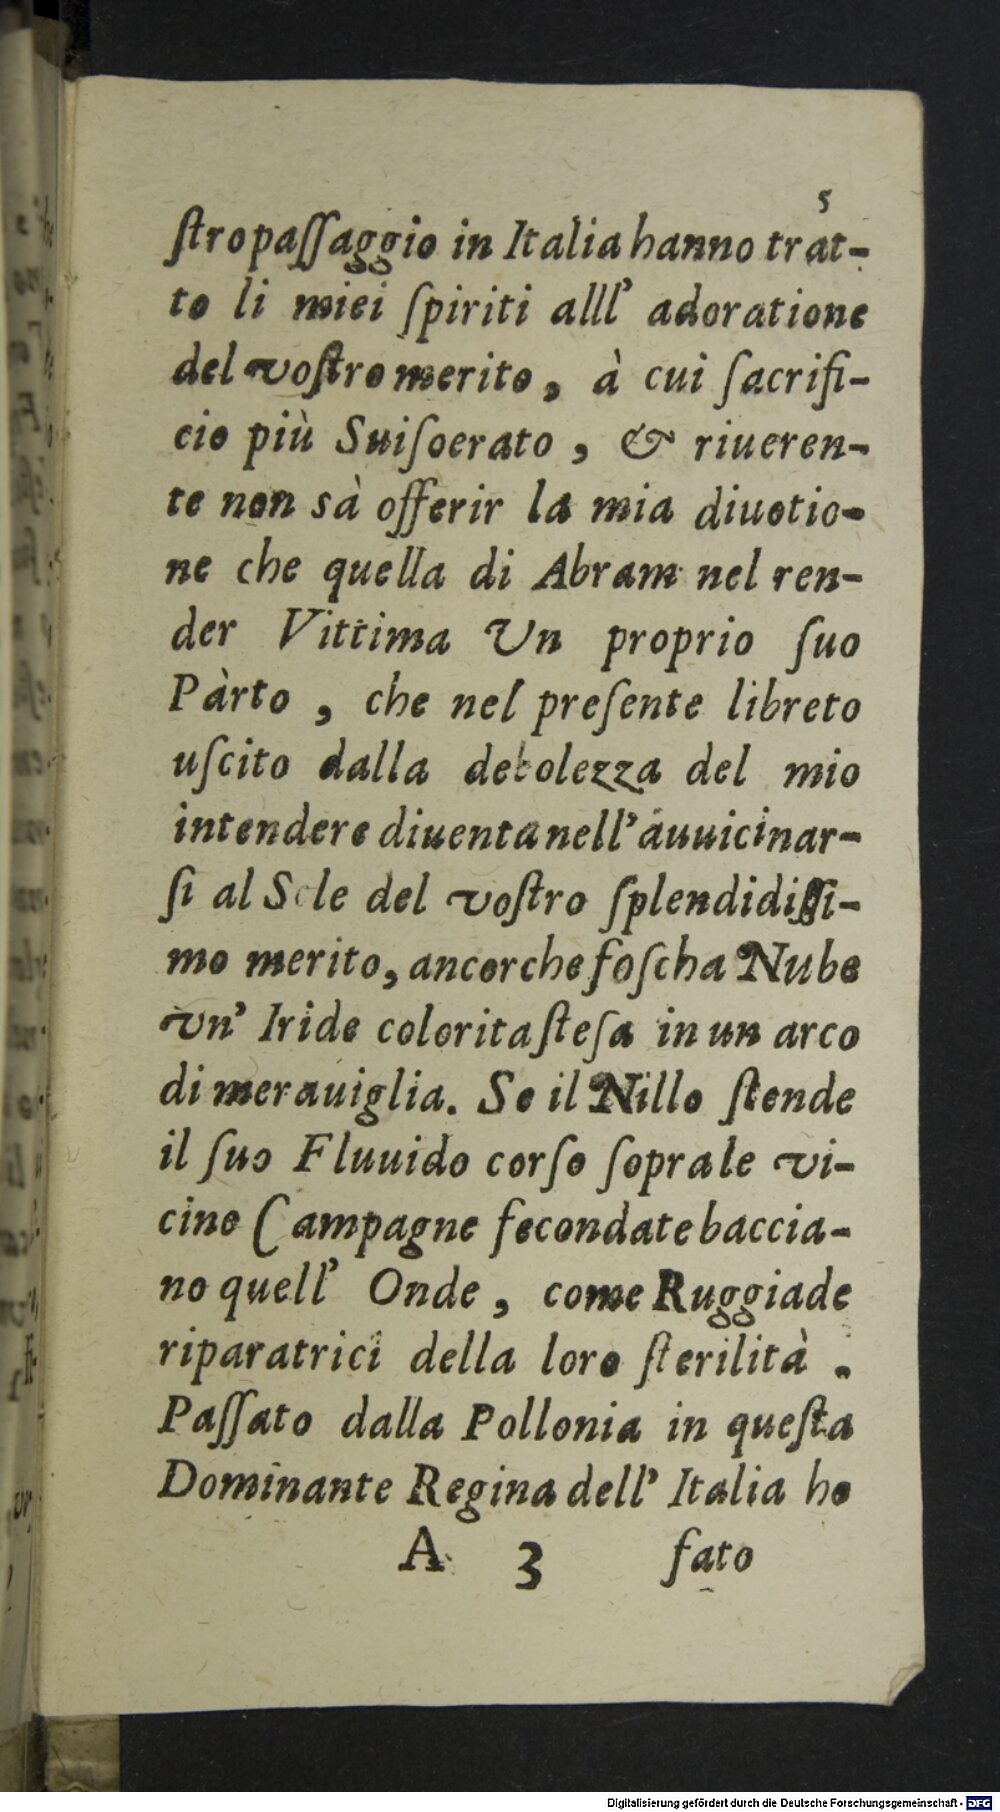 5
ſtro paſſaggio in Italia hanno trat-
to li miei ſpiriti alll' adoratione
del voſtro merito, à cui ſacrifi-
cio più Suiſoerato, & riueren-
te non sà offerir la mia diuotio-
ne che quella di Abram nel ren-
der Vittima Un proprio ſuo
Pàrto, che nel preſente libreto
uſcito dalla debolezza del mio
intendere diuenta nell'auuicinar-
ſi al Sole del voſtro ſplendidiſſi-
mo merito, ancorche foſcha Nube
vn' Iride colorita ſteſa in un arco
di merauiglia. Se il Nillo ſtende
il ſuo Fluuido corſo ſopra le vi-
cine Campagne fecondate baccia-
no quell' Onde, come Ruggiade
riparatrici della loro ſterilità.
Paſſato dalla Pollonia in queſta
Dominante Regina dell' Italia ho
A 3 fato
Digitalisierung gefördert durch die Deutsche Forschungsgemeinschaft - DFG